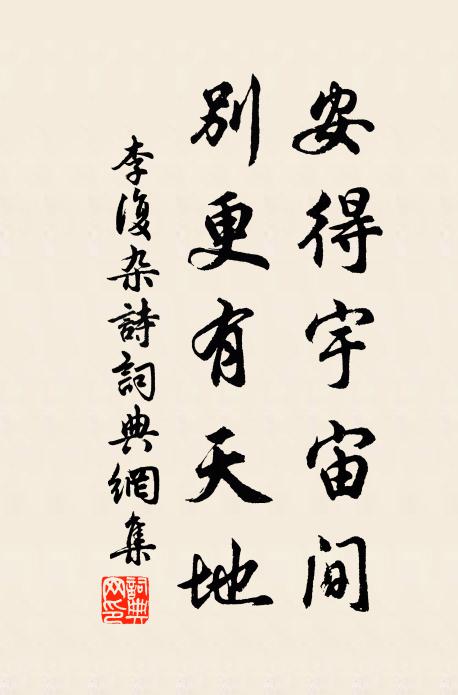 安得宇宙间
别更有天地
李復杂詩詞典網集
詞典网印